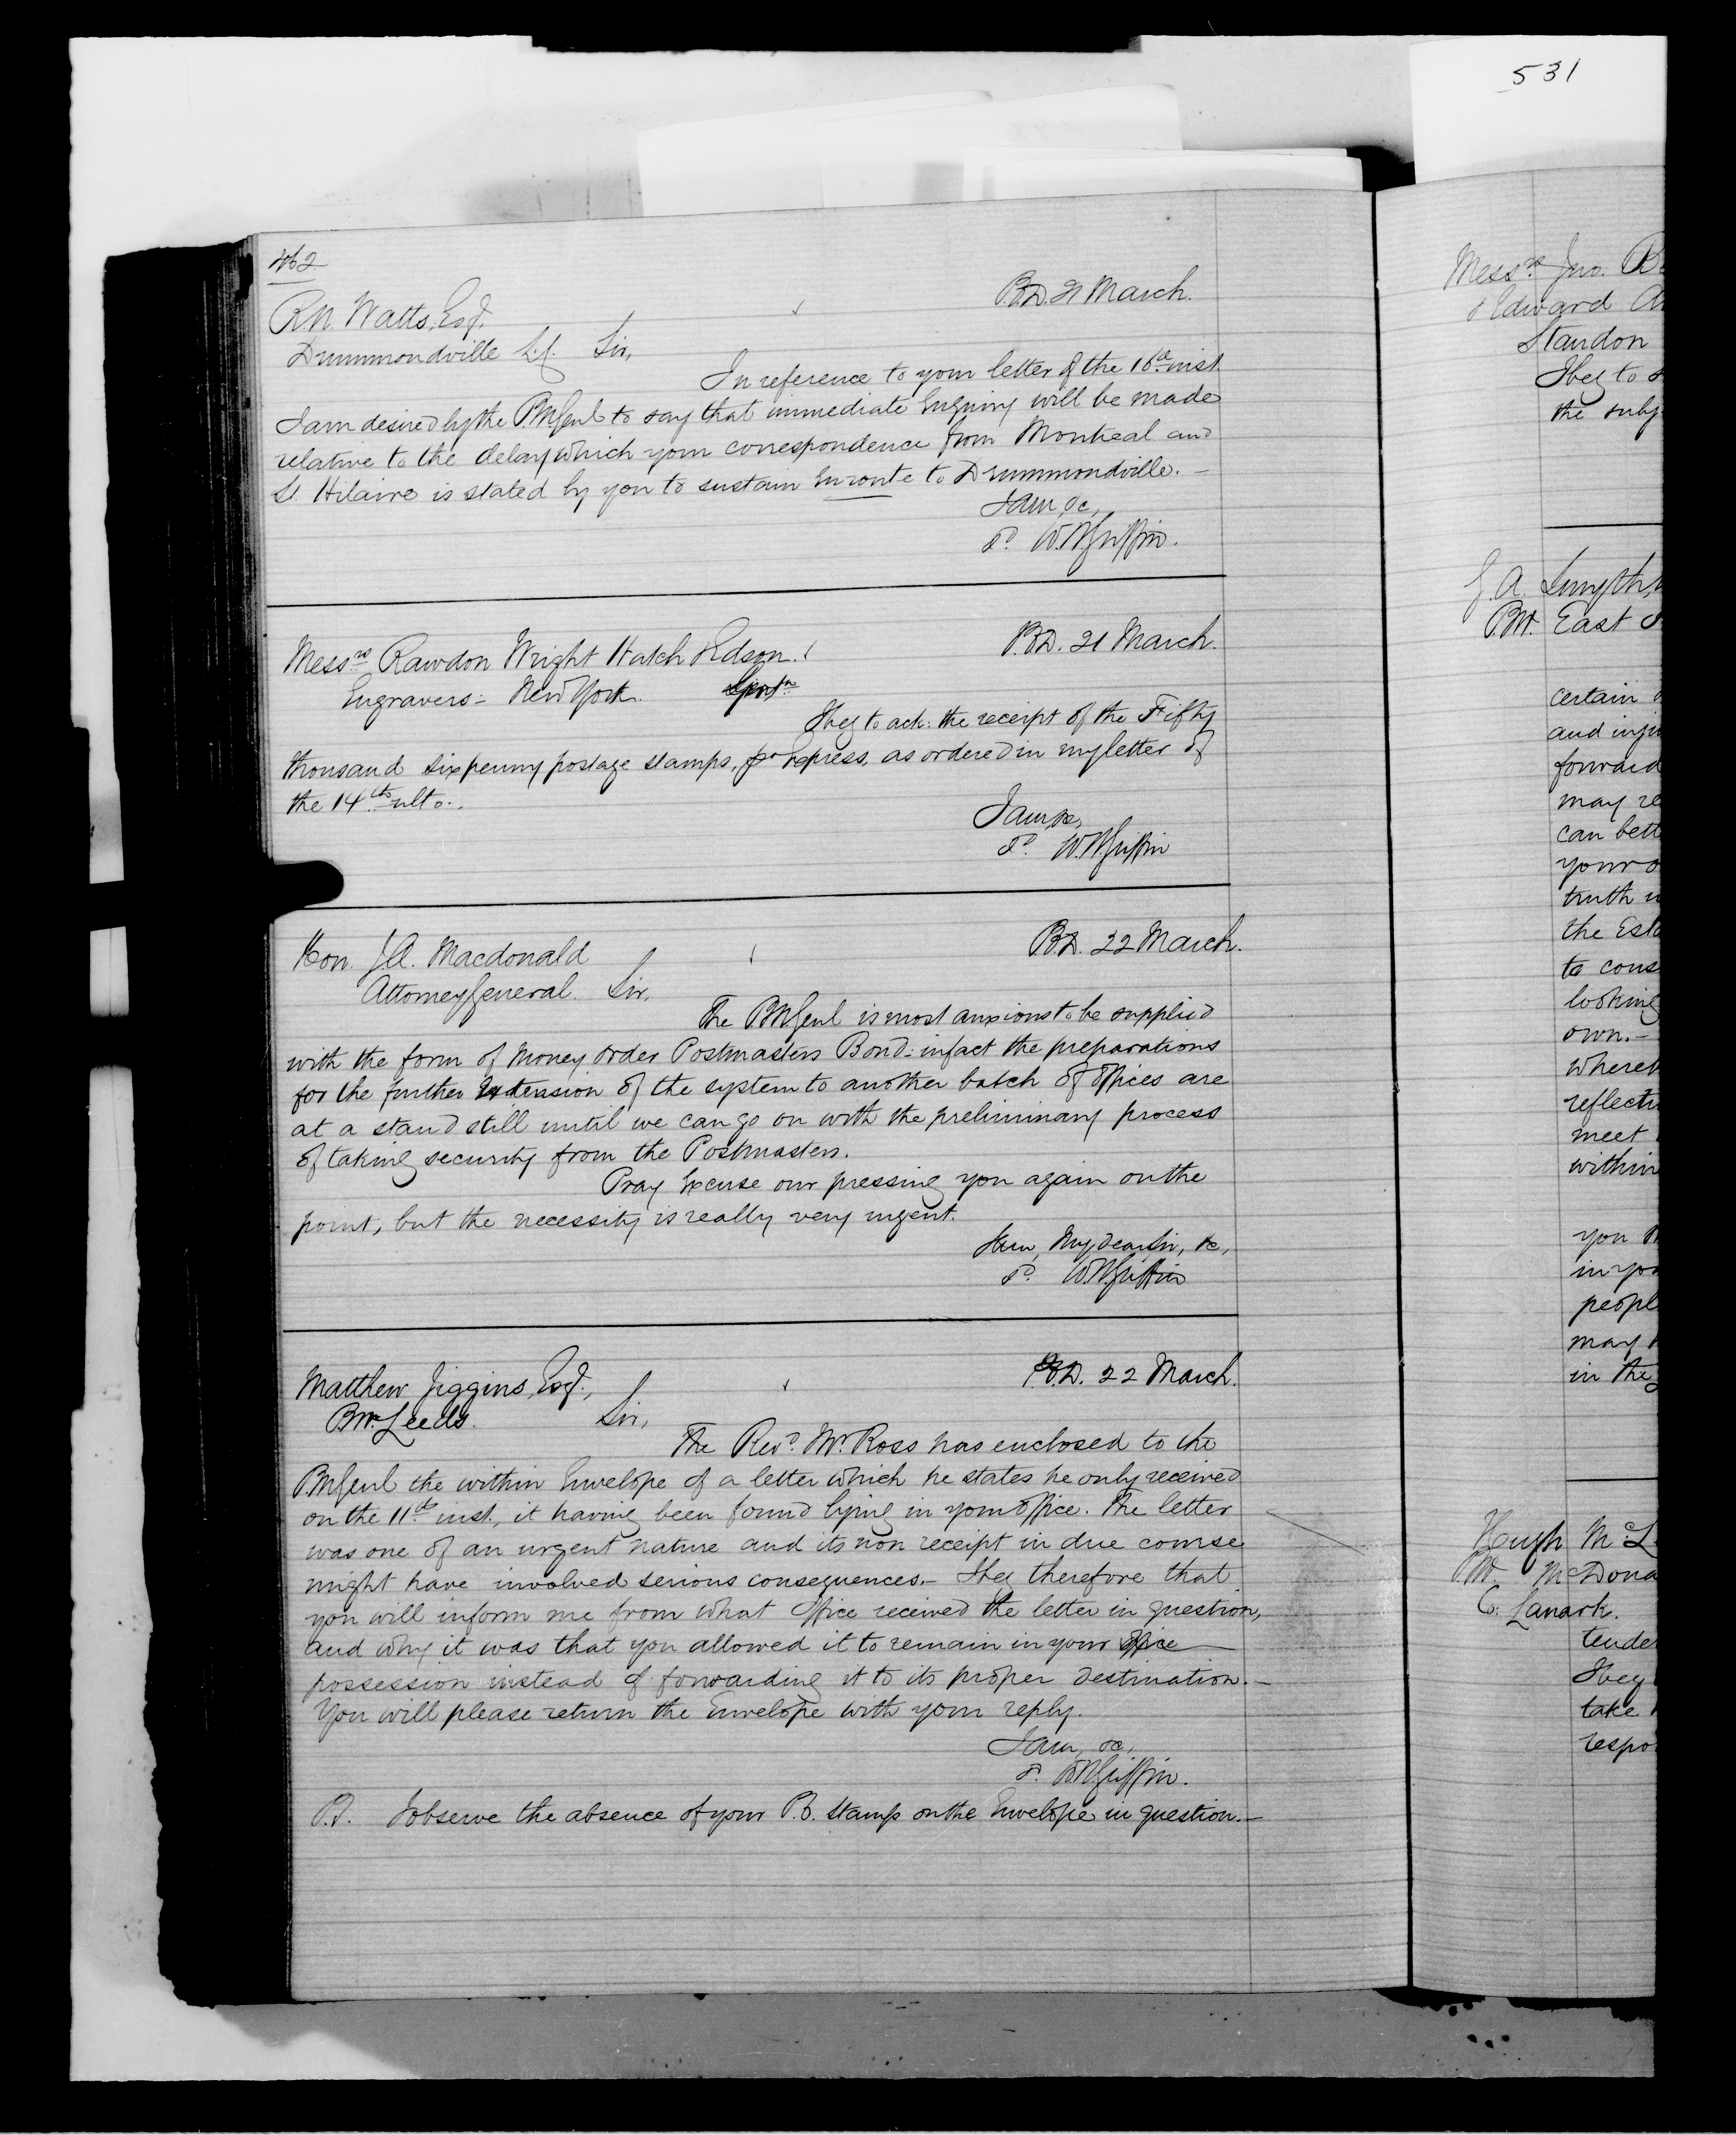 531
462
R.N. Watts, Esq.
P.O.D. 21 March.
Drummondville L.C. Sir,
In reference to your letter of the 16th inst.
I am desired by the P.M.Genl to say that immediate Enquiry will be made
relative to the delay which your correspondence from Montreal and
St. Hilaire is stated by you to sustain Enroute to Drummondville. —
I am, &c,
W.H. Griffin.
Messrs Rawdon Wright Hatch & Edson.
P.O.D. 21 March.
Engravers - New York.
I beg to ack: the receipt of the Fifty
thousand sixpenny postage stamps, pr Express, as ordered in my letter of
the 14th ulto.
I am, &c,
W.H. Griffin
Hon. J.A. Macdonald
P.O.D. 22 March.
Attorney General. Sir,
The P.M.Genl is most anxious to be supplied
with the form of Money Order Postmasters Bond - in fact the preparations
for the further Extension of the system to another batch of Offices are
at a stand still until we can go on with the preliminary process
of taking security from the Postmasters.
Pray Excuse our pressing you again on the
point, but the necessity is really very urgent.
I am, My dear Sir, &c,
W.H. Griffin
Matthew Jiggins, Esq.,
P.O.D. 22 March.
P.M. Leeds. Sir,
The Revd Mr. Ross has enclosed to the
P.M.Genl the within Envelope of a letter which he states he only received
on the 11th inst., it having been found lying in your office. The letter
was one of an urgent nature and its non receipt in due course
might have involved serious consequences. — I beg therefore that
you will inform me from what Office received the letter in question,
and why it was that you allowed it to remain in your office
possession instead of forwarding it to its proper destination. —
You will please return the Envelope with your reply.
I am, &c,
W.H. Griffin.
P.S. I observe the absence of your P.O. stamp on the Envelope in question. —
Messrs Jno.
& Edward
Standon
I beg to
the subj
P.M. East
certain
and inju
forward
may re
can bett
your o
truth
the Esta
to cons
looking
own. —
where
reflecti
meet
within
you
in you
peopl
may
in the
Hugh McL
P.M. McDona
Co: Lanark.
tende
I beg
take
respo